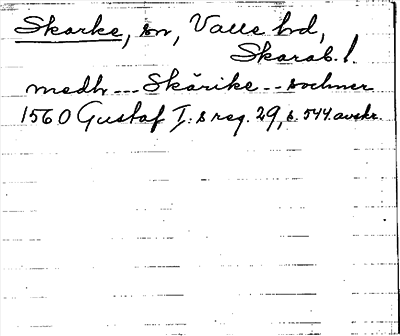 Skarke, sn, Valle hd,
Skarab. l.
medh --- Skärike -- sochner
1560 Gustaf I:s reg. 29, s. 544. avskr.